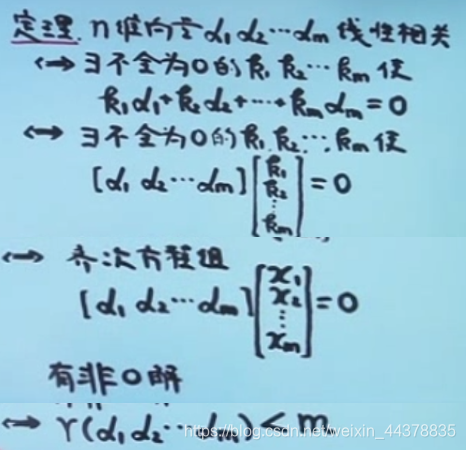 定理. n维向量 α₁ α₂ ⋯ αₘ 线性相关
⟷ ∃ 不全为0的 k₁ k₂ ⋯ kₘ 使
k₁α₁+k₂α₂+⋯+kₘαₘ=0
⟷ ∃ 不全为0的 k₁, k₂, ⋯, kₘ 使
[α₁ α₂ ⋯ αₘ] [k₁ k₂ ⋮ kₘ] = 0
⟷ 齐次方程组
[α₁ α₂ ⋯ αₘ] [x₁ x₂ ⋮ xₘ] = 0
有非0解
⟷ r(α₁ α₂ ⋯ αₘ) < m
https://blog.csdn.net/weixin_44378835